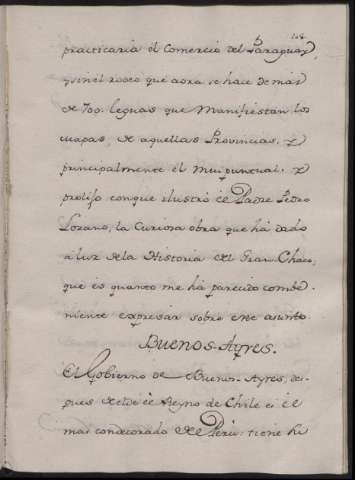 practicaria él Comercio del Paraguay,
y sin el rodeo que aora se hace de mas
de 700. leguas que Manifiestan los
mapas, de aquellas Provincias. Y
principalmente él mui puntual, y
prolijo conque ilustró él Padre Pedro
Lozano, la Curiosa obra que há dado
á luz de la Historia del Gran Chaco,
que es quanto me há parecido combe-
niente expresar sobre este asunto.
Buenos-Ayres.
El Gobierno de Buenos-Ayres, des-
pues del de él Reyno de Chile es él
mas condecorado del Perú: tiene